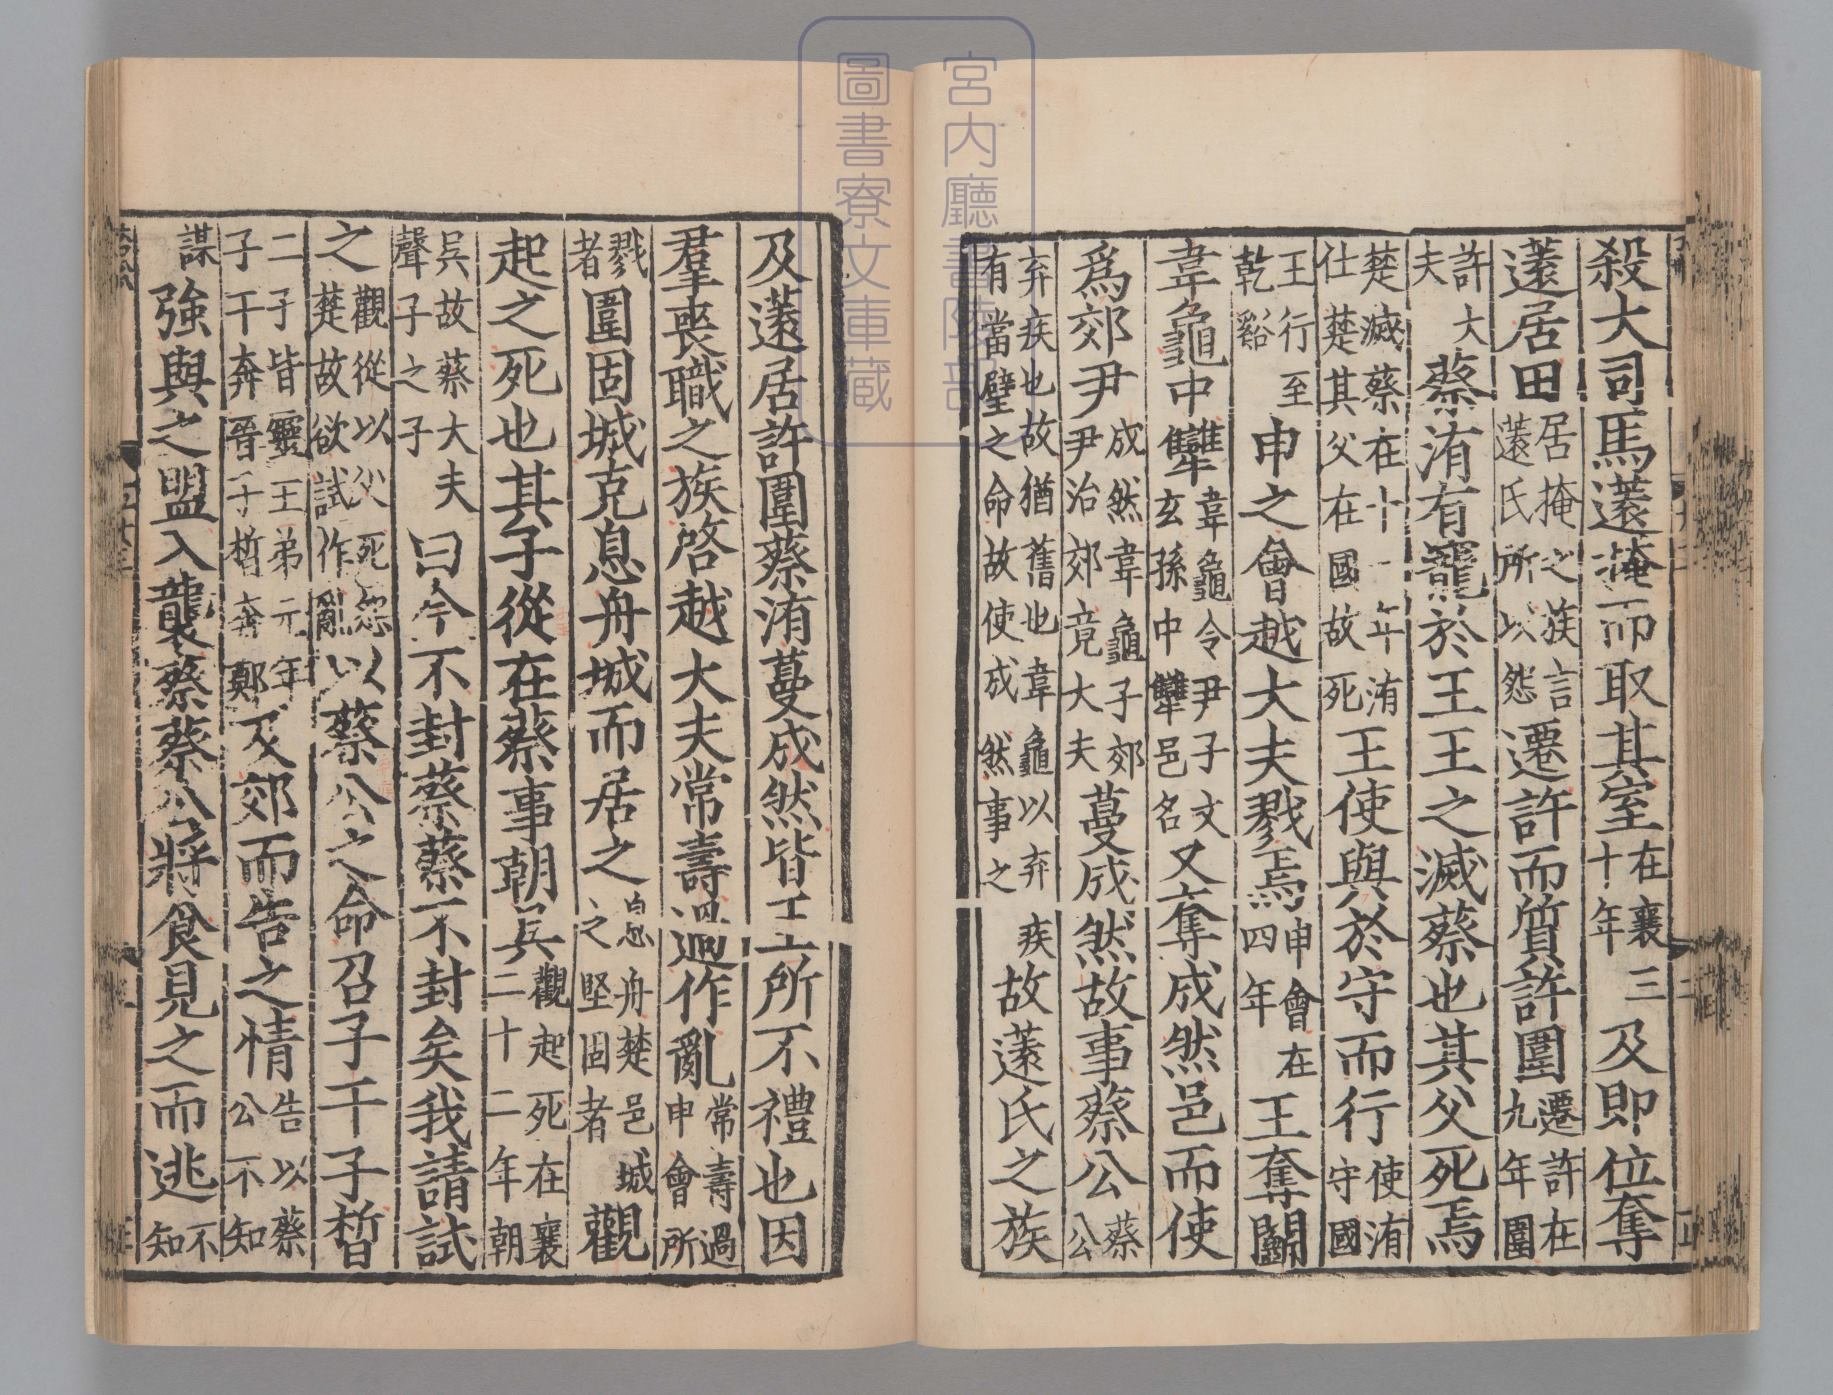 殺大司馬薳掩而取其室在襄三十年及即位奪
薳居田居掩之族言薳氏所以怨遷許而質許圍遷許在九年圍
許大夫蔡洧有寵於王王之滅蔡也其父死焉
楚滅蔡在十一年洧仕楚其父在國故死王使與於守而行使洧守國
王行至乾谿申之會越大夫戮焉申會在四年王奪鬭
韋龜中犨韋龜令尹子文玄孫中犨邑名又奪成然邑而使
爲郊尹成然韋龜子郊尹治郊竟大夫蔓成然故事蔡公蔡公
弃疾也故猶舊也韋龜以弃疾有當璧之命故使成然事之故薳氏之族
及薳居許圍蔡洧蔓成然皆王所不禮也因
羣喪職之族啓越大夫常壽過作亂常壽過申會所
戮者圍固城克息舟城而居之息舟楚邑城之堅固者觀
起之死也其子從在蔡事朝吳觀起死在襄二十二年朝
吳故蔡大夫聲子之子曰今不封蔡蔡不封矣我請試
之觀從以父死怨楚故欲試作亂以蔡公之命召子干子皙
二子皆靈王弟元年子干奔晉子皙奔鄭及郊而告之情告以蔡公不知
謀強與之盟入襲蔡蔡公將食見之而逃不知
宮内廳書陵部
圖書寮文庫藏